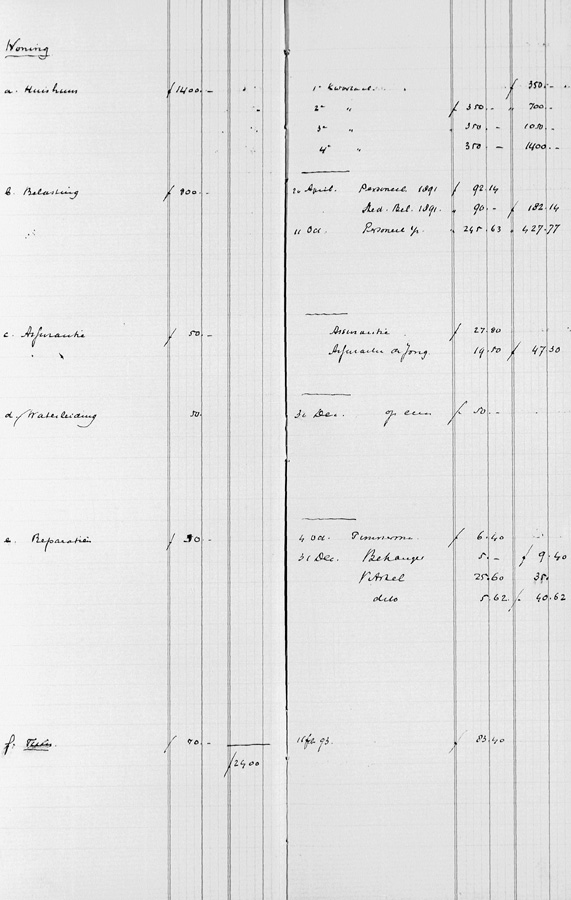 Woning
a. Huishuur f 1400.-
1e Kwartaal f 350.-
2e " f 350.- " 700.-
3e " " 350.- 1050.-
4e " 350.- 1400.-
b. Belasting f 800.-
20 April. Personeel 1891 f 92.14
Sted. Bel. 1891. " 90.- f 182.14
11 Oct. Personeel " 245.63 " 427.77
c. Assurantie f 50.-
Assurantie f 27.80
Assurantie de Jong. 19.50 f 47.30
d. Waterleiding 50.
31 Dec. f 50.-
e. Reparatie f 30.-
4 Oct. Timmerman f 6.40
31 Dec. Behanger 5.- f 9.40
25.60 35.
dito 5.62 f 40.62
f. f 70.-
15 feb. 93. f 83.40
f 2400